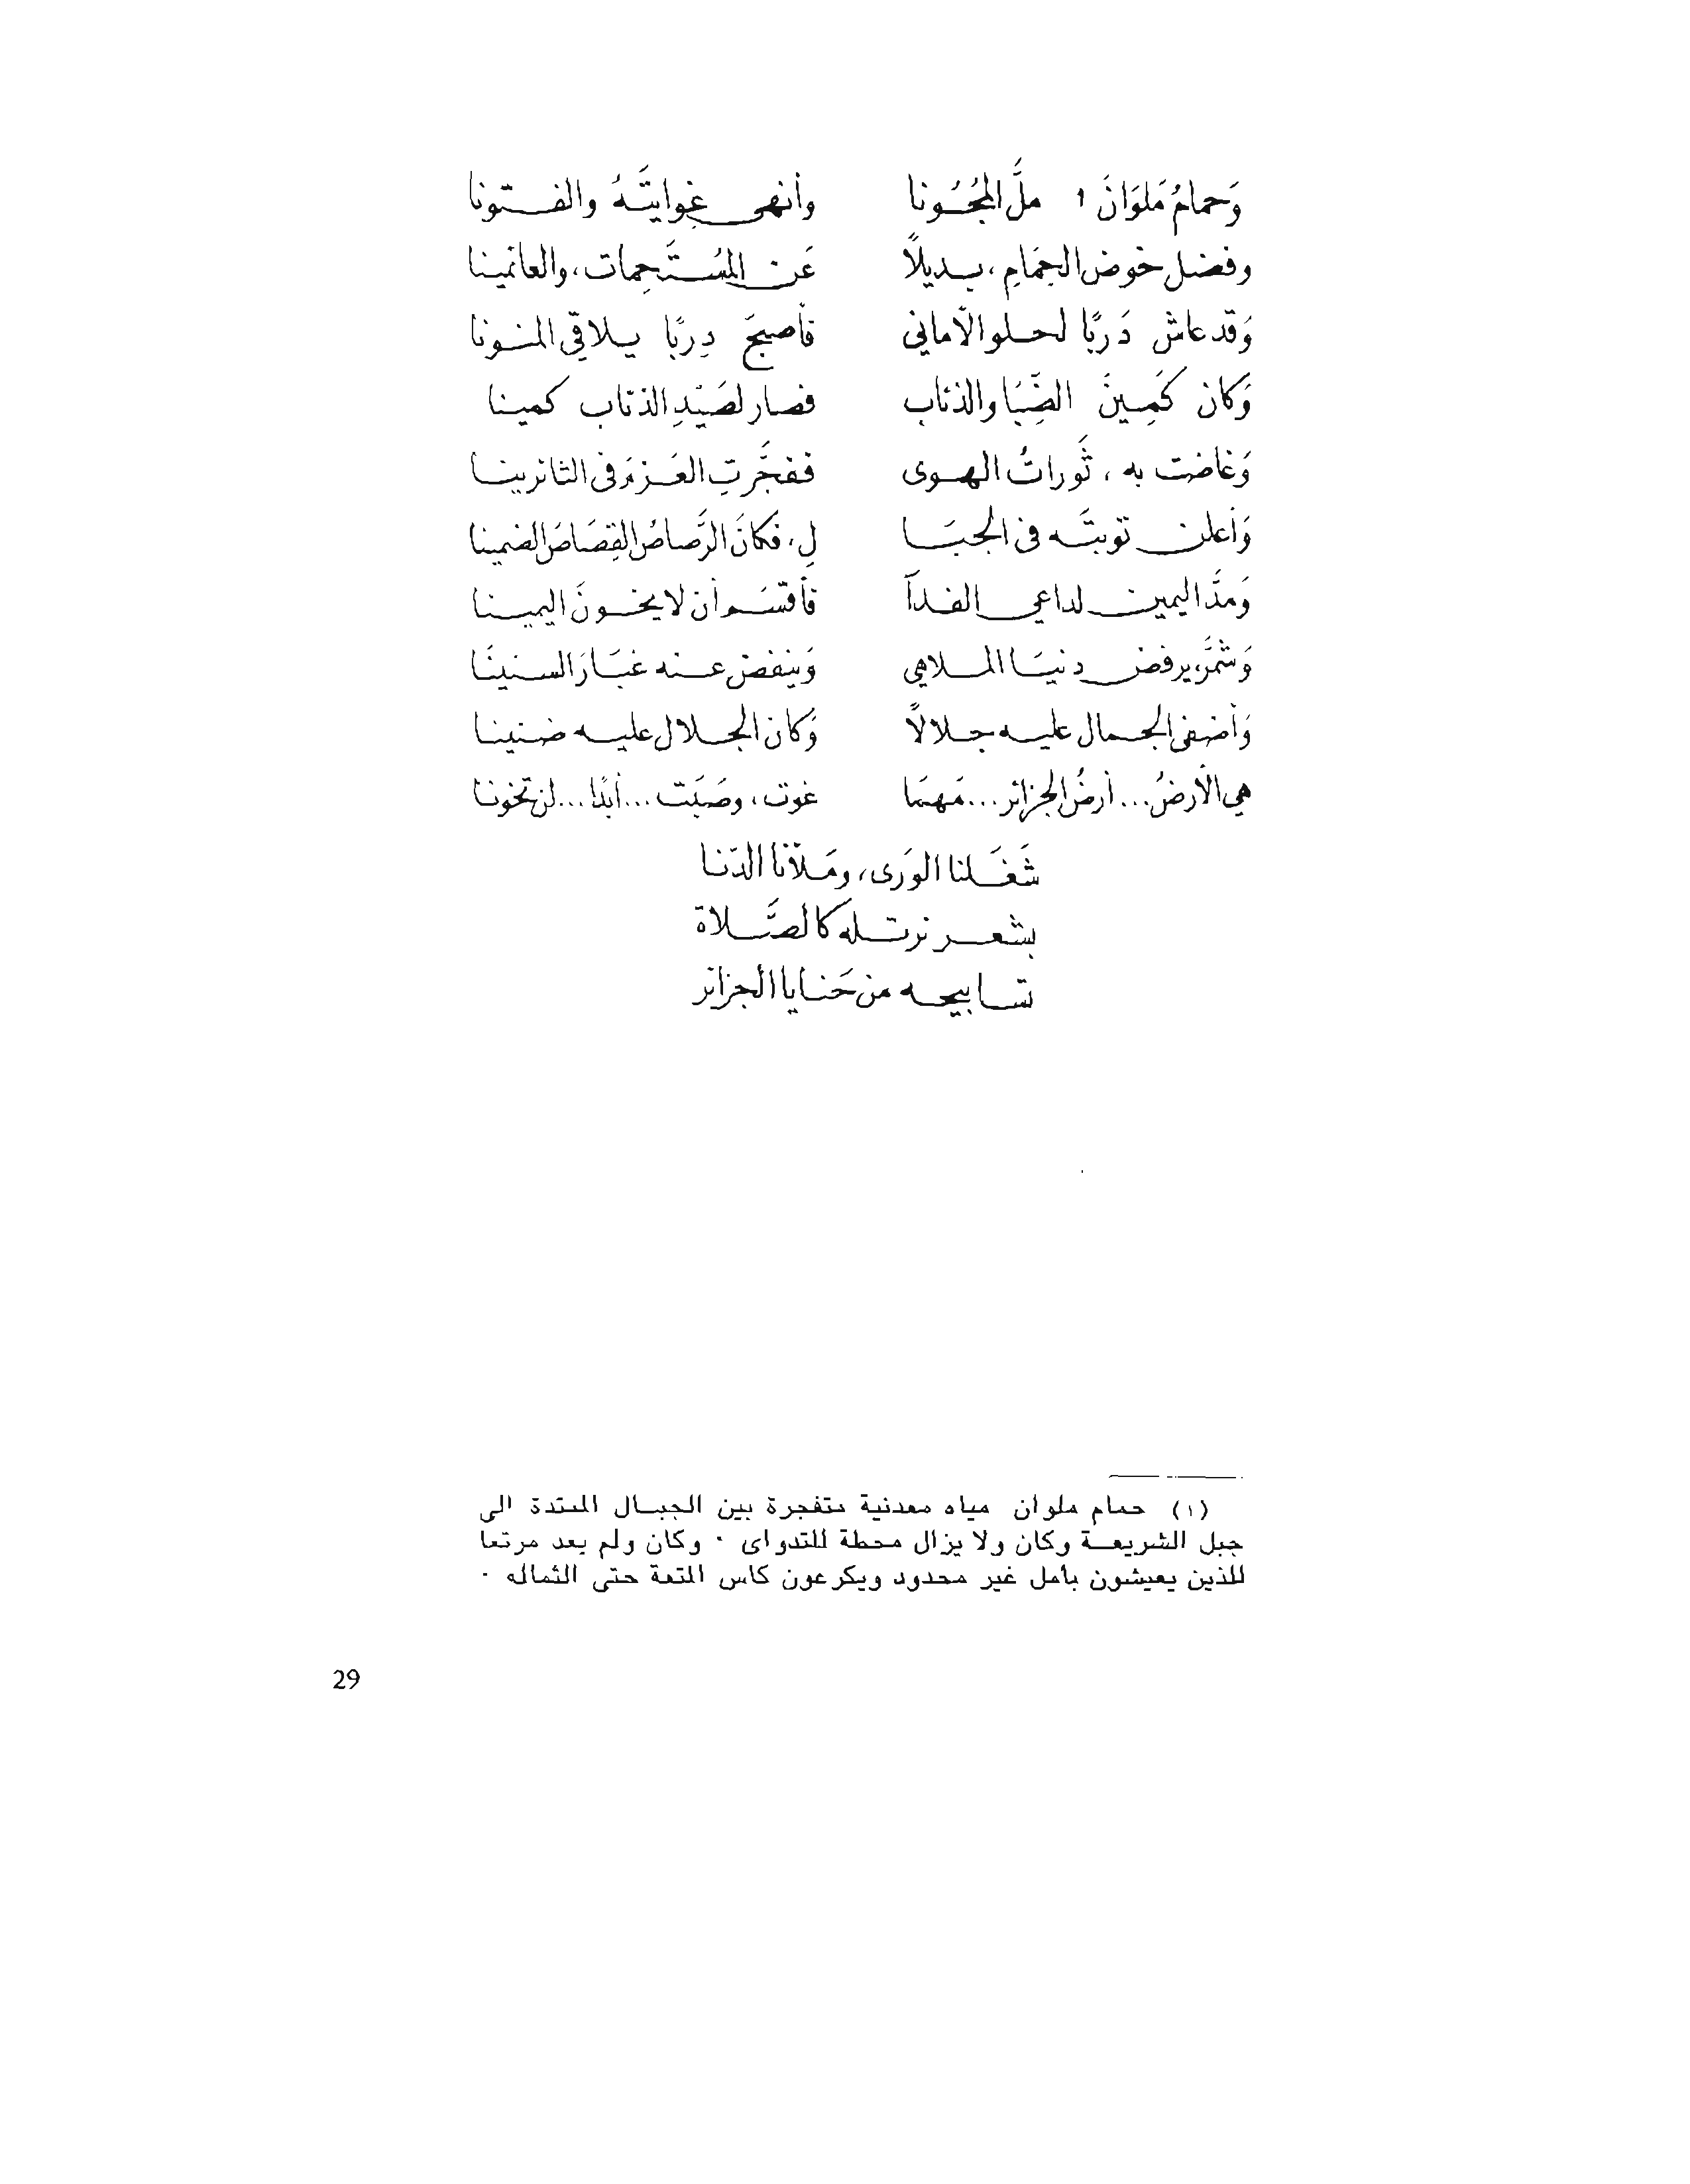 وَحمامُ مَلوَانَ ١ ملَّ المجُونا وأنهى غِوايتَهُ والفتونا
وفضل خوض الحِمَامِ، بديلاً عَن المُستَحِمات، والعائمينا
وَقد عاش دَربًا لحلو الأماني فأصبحَ دربًا يلاقي المنونا
وَكان كَمِينَ الضِّبَا والذئاب فصار لصَيْدِ الذئاب كمينا
وَغاضت به، ثَوراتُ الهوى ففجَّرتِ العَزمَ فى الثائرينا
وَأعلن توبتَه فى الجبَا لِ، فكانَ الرَّصاصُ القِصَاصَ الضمينا
وَمدَّ اليمين لداعي الفدآ فأقسَم أن لا يخونَ اليمينا
وَشمَّر، يرفض دنيَا الملاهي وَينفض عنه غبَارَ السنينَا
وَأضفى الجمال عليه جلالاً وَكان الجلال عليه ضنينا
هي الأرضُ... أرضُ الجزائر... مَهمَا غوت، وصَبَت... أبدًا... لن تخونا
شَغَلنا الوَرى، ومَلأنا الدّنا
بشعر نرتله كالصَّلاة
تسابيحه من حَنايا الجزائر
(١) حمام ملوان مياه معدنية متفجرة بين الجبال الممتدة الى
جبل الشريعة وكان ولا يزال محطة للتدواى ٠ وكان ولم يعد مرتعا
للذين يعيشون بأمل غير محدود ويكرعون كاس المتعة حتى الثماله ٠
29